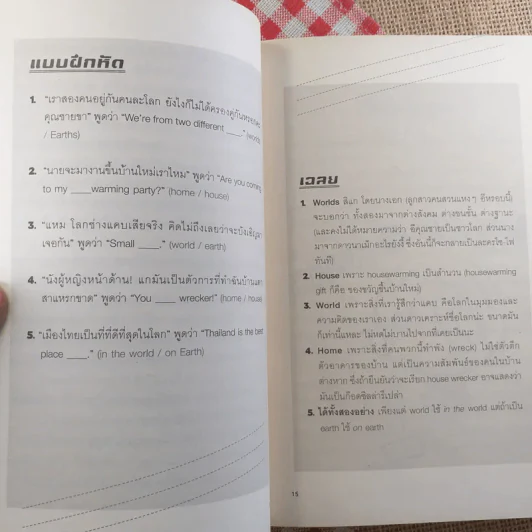 แบบฝึกหัด
1. "เราสองคนอยู่กันคนละโลก ยังไงก็ไม่ได้ครองคู่กันหรอกค่ะ
คุณชายขา" พูดว่า "We're from two different ____." (worlds
/ Earths)
2. "นายจะมางานขึ้นบ้านใหม่เราไหม" พูดว่า "Are you coming
to my ____warming party?" (home / house)
3. "แหม โลกช่างแคบเสียจริง คิดไม่ถึงเลยว่าจะบังเอิญมา
เจอกัน" พูดว่า "Small ____." (world / earth)
4. "นังผู้หญิงหน้าด้าน! แกมันเป็นตัวการที่ทำฉันบ้านแตก
สาแหรกขาด" พูดว่า "You ____ wrecker!" (home / house
5. "เมืองไทยเป็นที่ที่ดีที่สุดในโลก" พูดว่า "Thailand is the best
place ____." (in the world / on Earth)
เฉลย
1. Worlds ลิเก โดยนางเอก (ลูกสาวคนสวนแหงๆ อีหรอบนี้)
จะบอกว่า ทั้งสองมาจากต่างสังคม ต่างชนชั้น ต่างฐานะ
(และคงไม่ได้หมายความว่า อีคุณชายเป็นชาวโลก ส่วนนาง
มาจากดาวนาเม็กอะไรยังงี้ ซึ่งอันนี้ก็จะกลายเป็นละครไซ-ไฟ
ทันที)
2. House เพราะ housewarming เป็นสำนวน (housewarming
gift ก็คือ ของขวัญขึ้นบ้านใหม่)
3. World เพราะสิ่งที่เรารู้สึกว่าแคบ คือโลกในมุมมองและ
ความคิดของเราเอง ส่วนดาวเคราะห์ชื่อโลกน่ะ ขนาดมัน
ก็เท่านี้แหละ ไม่หดไม่บานไปจากที่เคยเป็นนะ
4. Home เพราะสิ่งที่คนพวกนี้ทำพัง (wreck) ไม่ใช่ตัวตึก
ตัวอาคารของบ้าน แต่เป็นความสัมพันธ์ของคนในบ้าน
ต่างหาก ซึ่งถ้ายืนยันว่าจะเรียก house wrecker อาจแสดงว่า
มันเป็นก็อดซิลล่ารึเปล่า
5. ได้ทั้งสองอย่าง เพียงแต่ world ใช้ in the world แต่ถ้าเป็น
earth ใช้ on earth
15